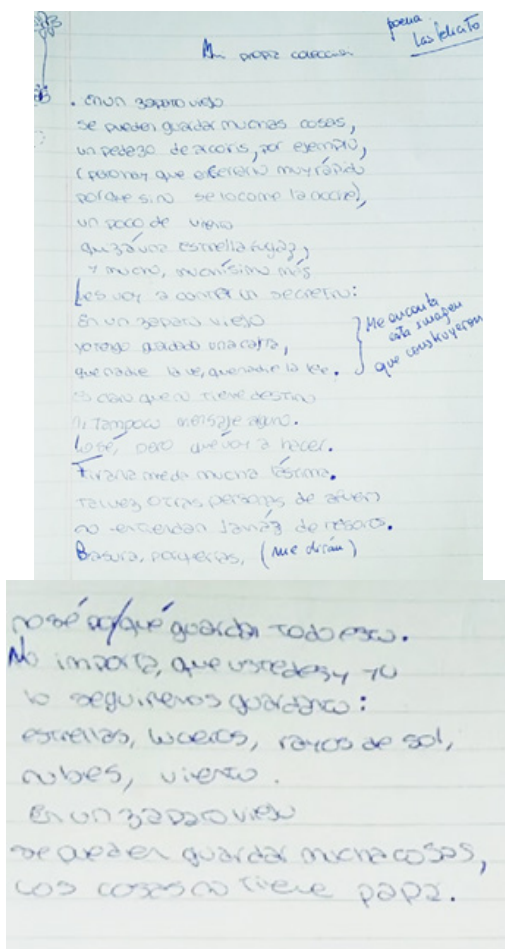 poema
Las felicito
Mi propia colección
. En un zapato viejo
se pueden guardar muchas cosas,
un pedazo de arcoris, por ejemplo,
(pero hay que esconerlo muy rápido
porque sino se lo come la noche),
un poco de viento
quizá una estrella fugaz,
y mucho, muchísimo más
Les voy a contar un secreto:
En un zapato viejo
yo tengo guardado una carta,
que nadie la ve, que nadie la lee.
Me encanta
esta imagen
que construyeron
es claro que no tiene destino
ni tampoco mensaje alguno.
Lo sé, pero qué voy a hacer.
Tirarla me da mucha lástima.
Tal vez otras personas de afuera
no entiendan jamáz de tesoros.
Basura, porquerías, (me dirán)
no sé por qué guardar todo esto.
No importa, que ustedes y yo
lo seguiremos guardando:
estrellas, luceros, rayos de sol,
nubes, viento.
En un zapato viejo
se pueden guardar mucha cosas,